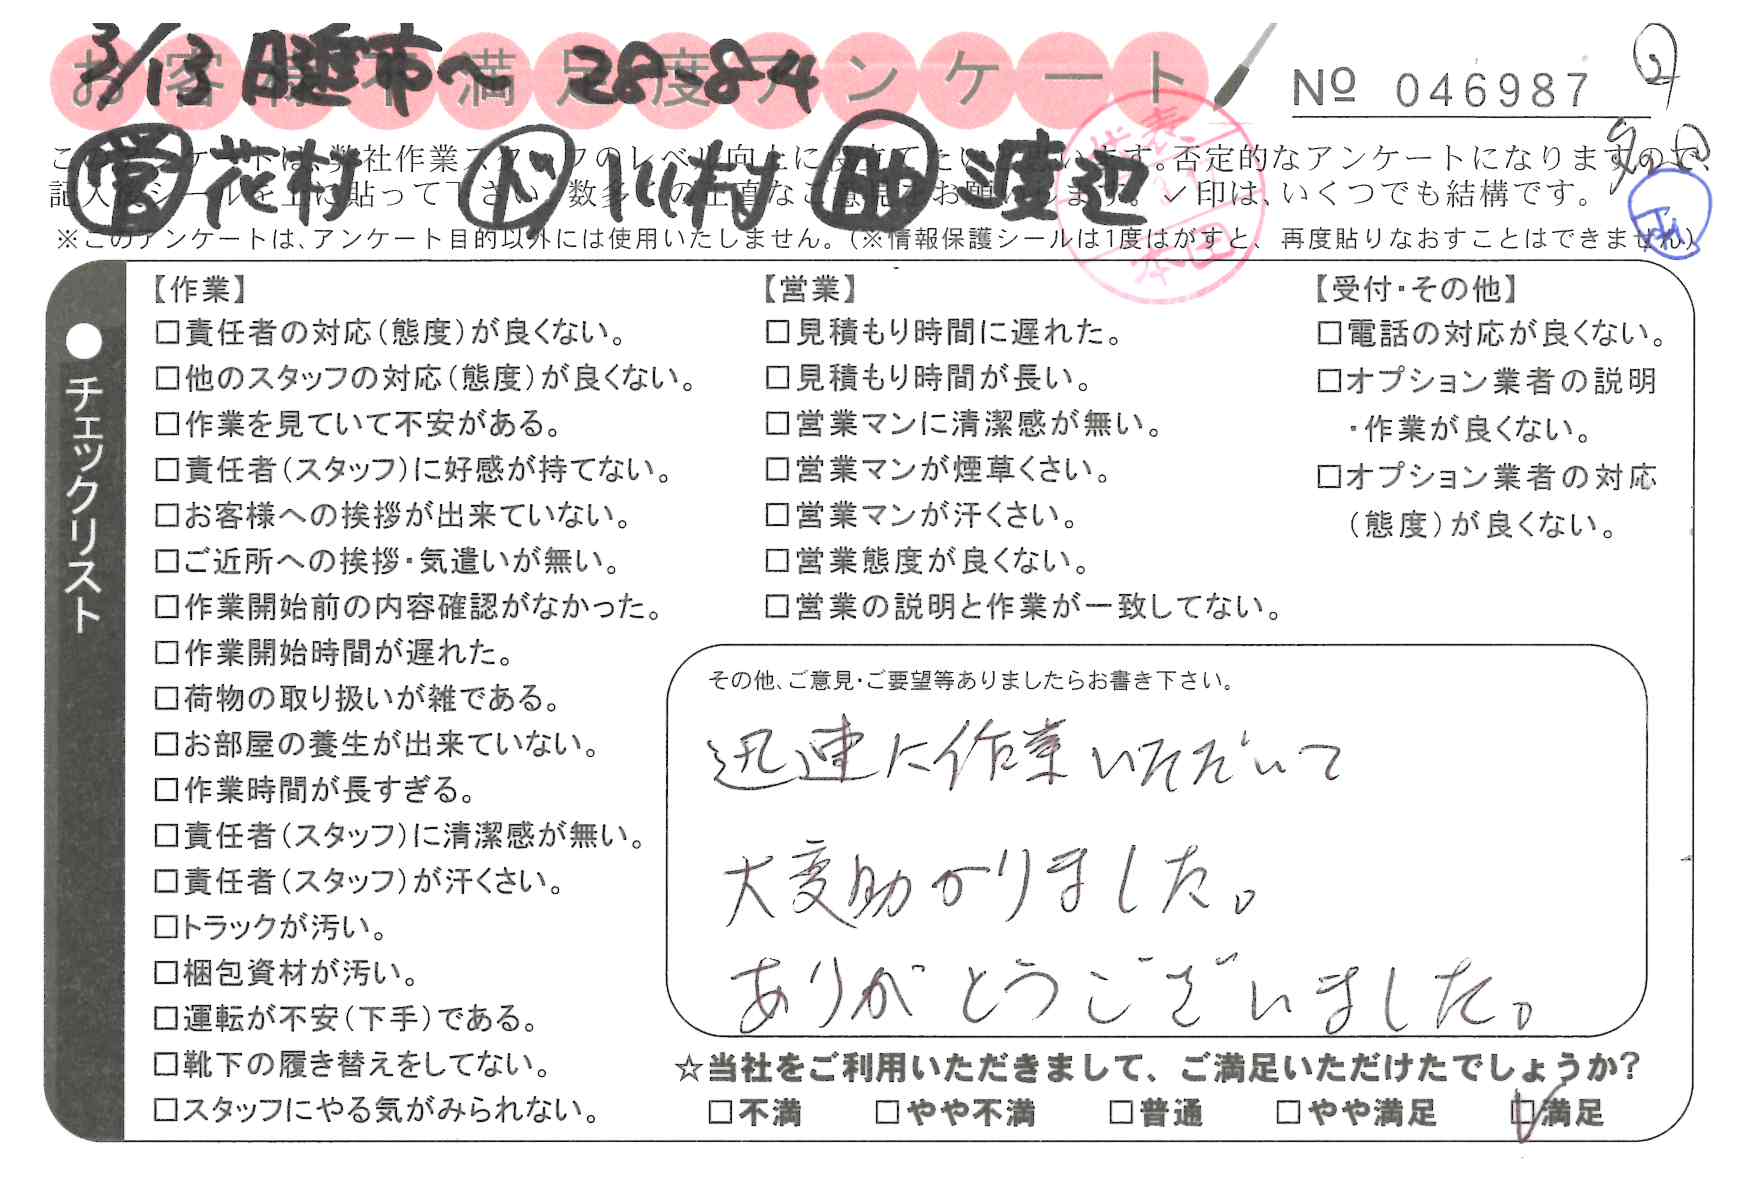 3/13 市へ 28-84
お客様不満足度アンケート
№ 046987
営 花村 ド 川村 助 渡辺
このアンケートは、弊社作業スタッフのレベル向上に役立てたいと思います。否定的なアンケートになりますので、
記入後シールを上に貼って下さい。数多くの正直なご意見をお願いします。✓印は、いくつでも結構です。
※このアンケートは、アンケート目的以外には使用いたしません。(※情報保護シールは1度はがすと、再度貼りなおすことはできません)
本田
●チェックリスト
【作業】
□責任者の対応(態度)が良くない。
□他のスタッフの対応(態度)が良くない。
□作業を見ていて不安がある。
□責任者(スタッフ)に好感が持てない。
□お客様への挨拶が出来ていない。
□ご近所への挨拶・気遣いが無い。
□作業開始前の内容確認がなかった。
□作業開始時間が遅れた。
□荷物の取り扱いが雑である。
□お部屋の養生が出来ていない。
□作業時間が長すぎる。
□責任者(スタッフ)に清潔感が無い。
□責任者(スタッフ)が汗くさい。
□トラックが汚い。
□梱包資材が汚い。
□運転が不安(下手)である。
□靴下の履き替えをしてない。
□スタッフにやる気がみられない。
【営業】
□見積もり時間に遅れた。
□見積もり時間が長い。
□営業マンに清潔感が無い。
□営業マンが煙草くさい。
□営業マンが汗くさい。
□営業態度が良くない。
□営業の説明と作業が一致してない。
【受付・その他】
□電話の対応が良くない。
□オプション業者の説明
・作業が良くない。
□オプション業者の対応
(態度)が良くない。
その他、ご意見・ご要望等ありましたらお書き下さい。
迅速に作業いただいて
大変助かりました。
ありがとうございました。
☆当社をご利用いただきまして、ご満足いただけたでしょうか?
□不満 □やや不満 □普通 □やや満足 ☑満足